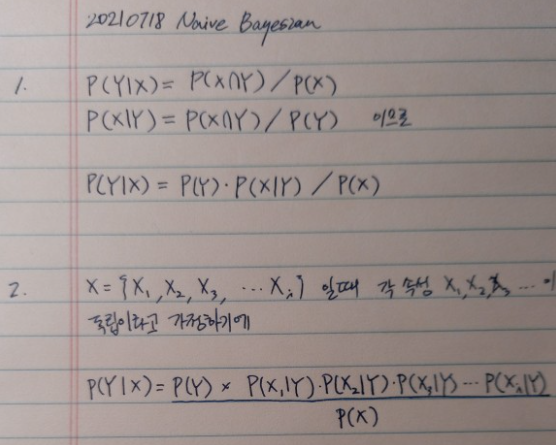 20210718 Naive Bayesian
1. P(Y|X) = P(X∩Y) / P(X)
P(X|Y) = P(X∩Y) / P(Y) 이므로
P(Y|X) = P(Y) · P(X|Y) / P(X)
2. X = {X₁, X₂, X₃, ... Xᵢ} 일때 각 속성 X₁, X₂, X₃ ... 이
독립이라고 가정하기에
P(Y|X) = P(Y) × P(X₁|Y) · P(X₂|Y) · P(X₃|Y) ... P(Xᵢ|Y)
P(X)